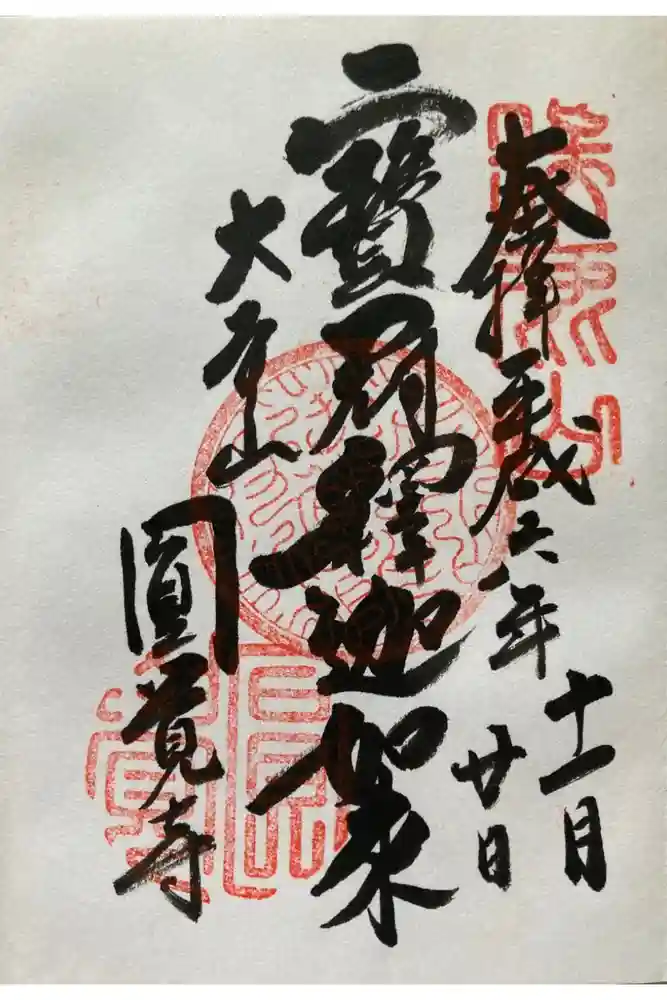 奉拝 平成六年
十一月
廿日
寶冠釋迦如来
大本山
圓覚寺